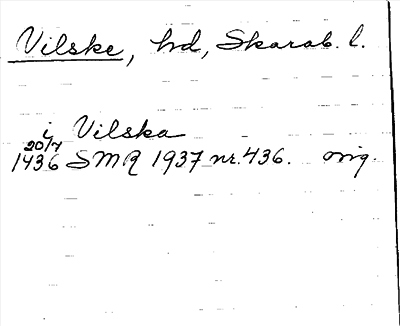 Vilske, hd, Skarab. l.
i Vilska
20/7
1436 SMR 1937 nr. 436. orig.